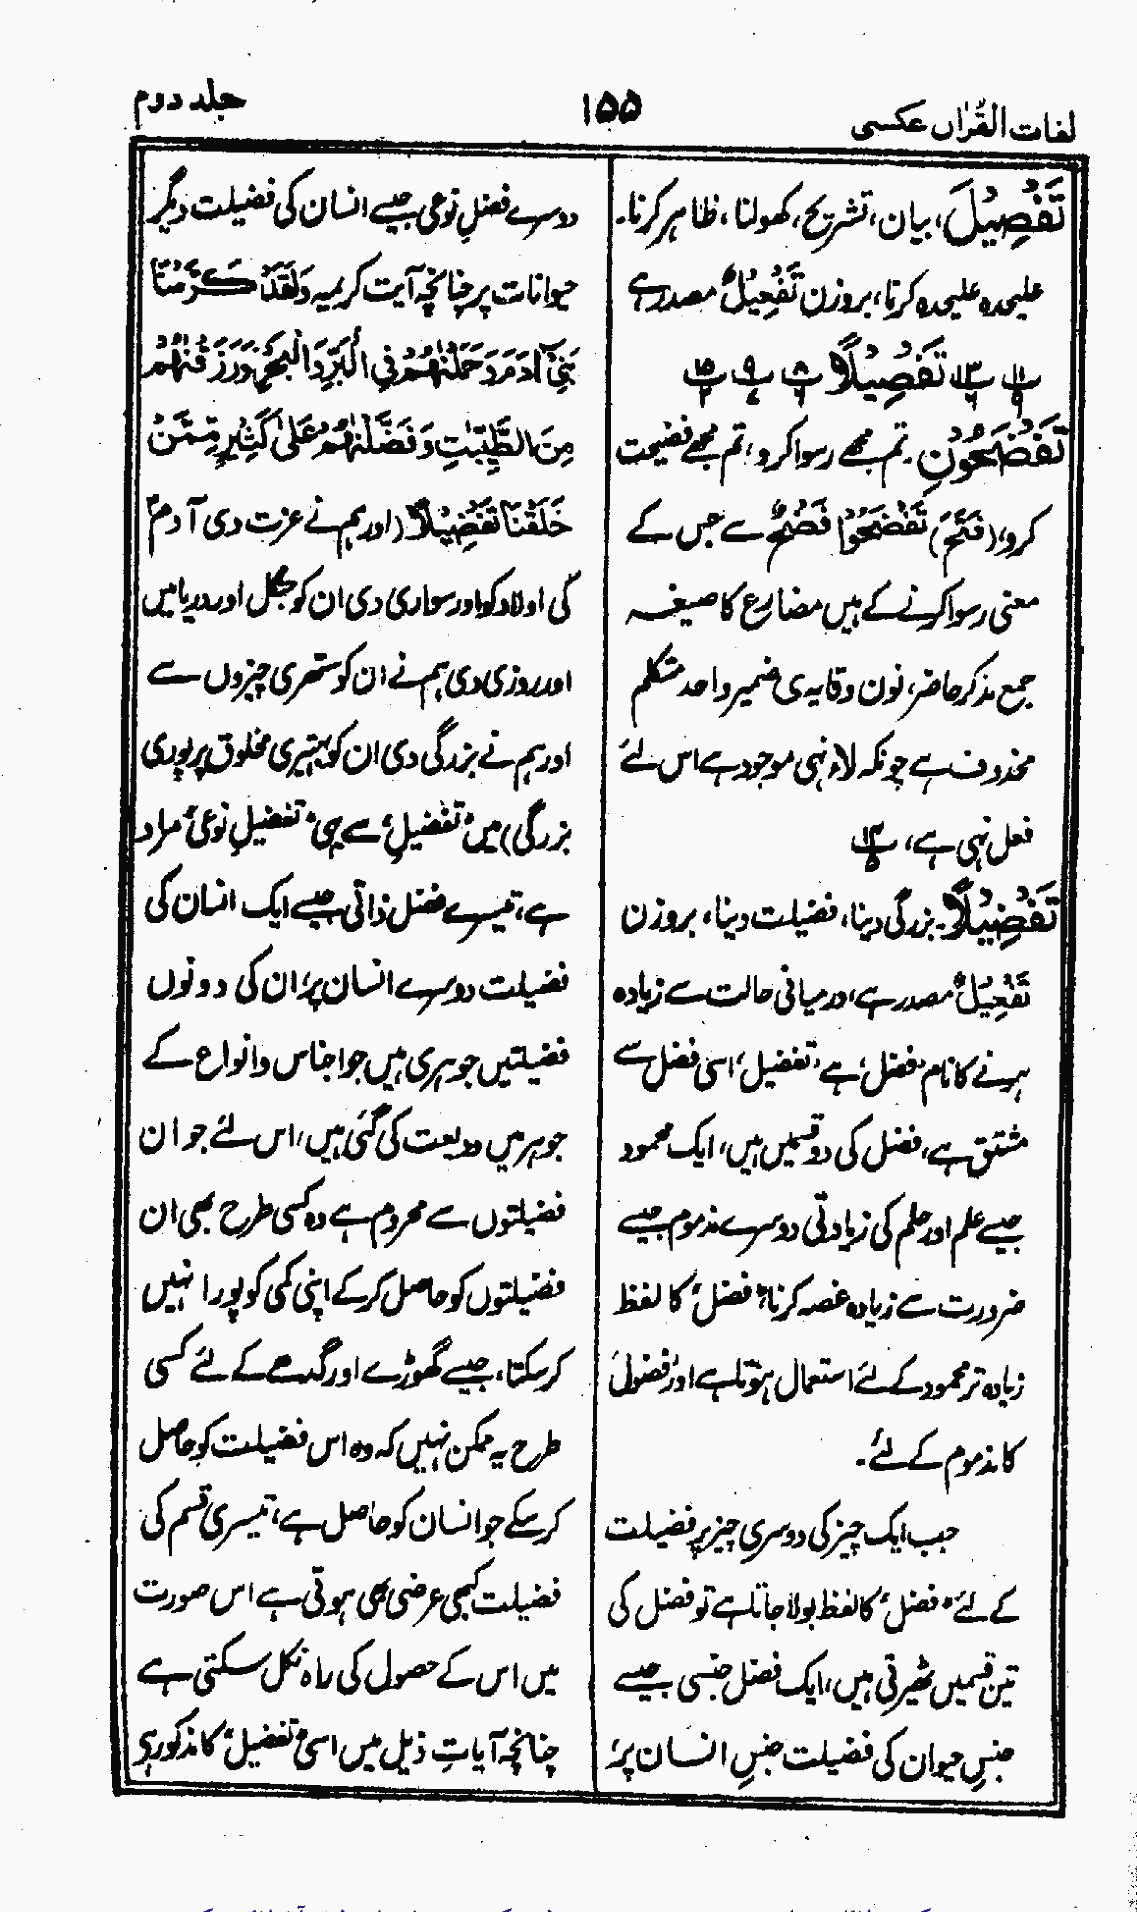 لغات القرآن عکسی
۱۵۵
جلد دوم
تَفْصِیْلَ، بیان، تشریح، کھولنا، ظاہر کرنا۔
علیحدہ علیحدہ کرنا، بروزن تَفْعِیْلٌ مصدر ہے
تَفْصِیْلًا
تَفْضَحُوْنِ۔ تم مجھے رسوا کرو، تم مجھے فضیحت
کرو، (فَتَحَ) تَفْضَحُوْا فَضْحٌ سے جس کے
معنی رسوا کرنے کے ہیں مضارع کا صیغہ
جمع مذکر حاضر، نون وقایہ ی ضمیر واحد متکلم
محذوف ہے چونکہ لاء نہی موجود ہے اس لئے
فعل نہی ہے،
تَفْضِیْلًا۔ بزرگی دینا، فضیلت دینا، بروزن
تَفْعِیْلٌ مصدر ہے، درمیانی حالت سے زیادہ
ہونے کا نام ’فضل‘ ہے ’تفضیل‘ اسی فضل سے
مشتق ہے، فضل کی دو قسمیں ہیں، ایک محمود
جیسے علم اور حلم کی زیادتی دوسرے مذموم جیسے
ضرورت سے زیادہ غصہ کرنا، ’فضل‘ کا لفظ
زیادہ تر محمود کے لئے استعمال ہوتا ہے اور ’فضول‘
کا مذموم کے لئے۔
جب ایک چیز کی دوسری چیز پر فضیلت
کے لئے ’فضل‘ کا لفظ بولا جاتا ہے تو فضل کی
تین قسمیں ٹھیرتی ہیں، ایک فضل جنسی جیسے
جنسِ حیوان کی فضیلت جنسِ انسان پر،
دوسرے فضلِ نوعی جیسے انسان کی فضیلت دیگر
حیوانات پر چنانچہ آیت کریمہ وَلَقَدْ کَرَّمْنَا
بَنِیْٓ اٰدَمَ وَحَمَلْنٰهُمْ فِی الْبَرِّ وَالْبَحْرِ وَرَزَقْنٰهُمْ
مِنَ الطَّیِّبٰتِ وَفَضَّلْنٰهُمْ عَلٰی کَثِیْرٍ مِّمَّنْ
خَلَقْنَا تَفْضِیْلًا (اور ہم نے عزت دی آدمؑ
کی اولاد کو اور سواری دی ان کو جنگل اور دریا میں
اور روزی دی ہم نے ان کو ستھری چیزوں سے
اور ہم نے بزرگی دی ان کو بہتیری مخلوق پر پوری
بزرگی) میں ’تفضیل‘ سے یہی ’تفضیلِ نوعی‘ مراد
ہے، تیسرے فضل ذاتی جیسے ایک انسان کی
فضیلت دوسرے انسان پر، ان کی دونوں
فضیلتیں جوہری ہیں جو اجناس وانواع کے
جوہر میں ودیعت کی گئی ہیں، اس لئے جو ان
فضیلتوں سے محروم ہے وہ کسی طرح بھی ان
فضیلتوں کو حاصل کرکے اپنی کمی کو پورا نہیں
کرسکتا، جیسے گھوڑے اور گدھے کے لئے کسی
طرح یہ ممکن نہیں کہ وہ اس فضیلت کو حاصل
کرسکے جو انسان کو حاصل ہے، تیسری قسم کی
فضیلت کبھی عرضی بھی ہوتی ہے اس صورت
میں اس کے حصول کی راہ نکل سکتی ہے
چنانچہ آیاتِ ذیل میں اسی ’تفضیل‘ کا مذکور ہی